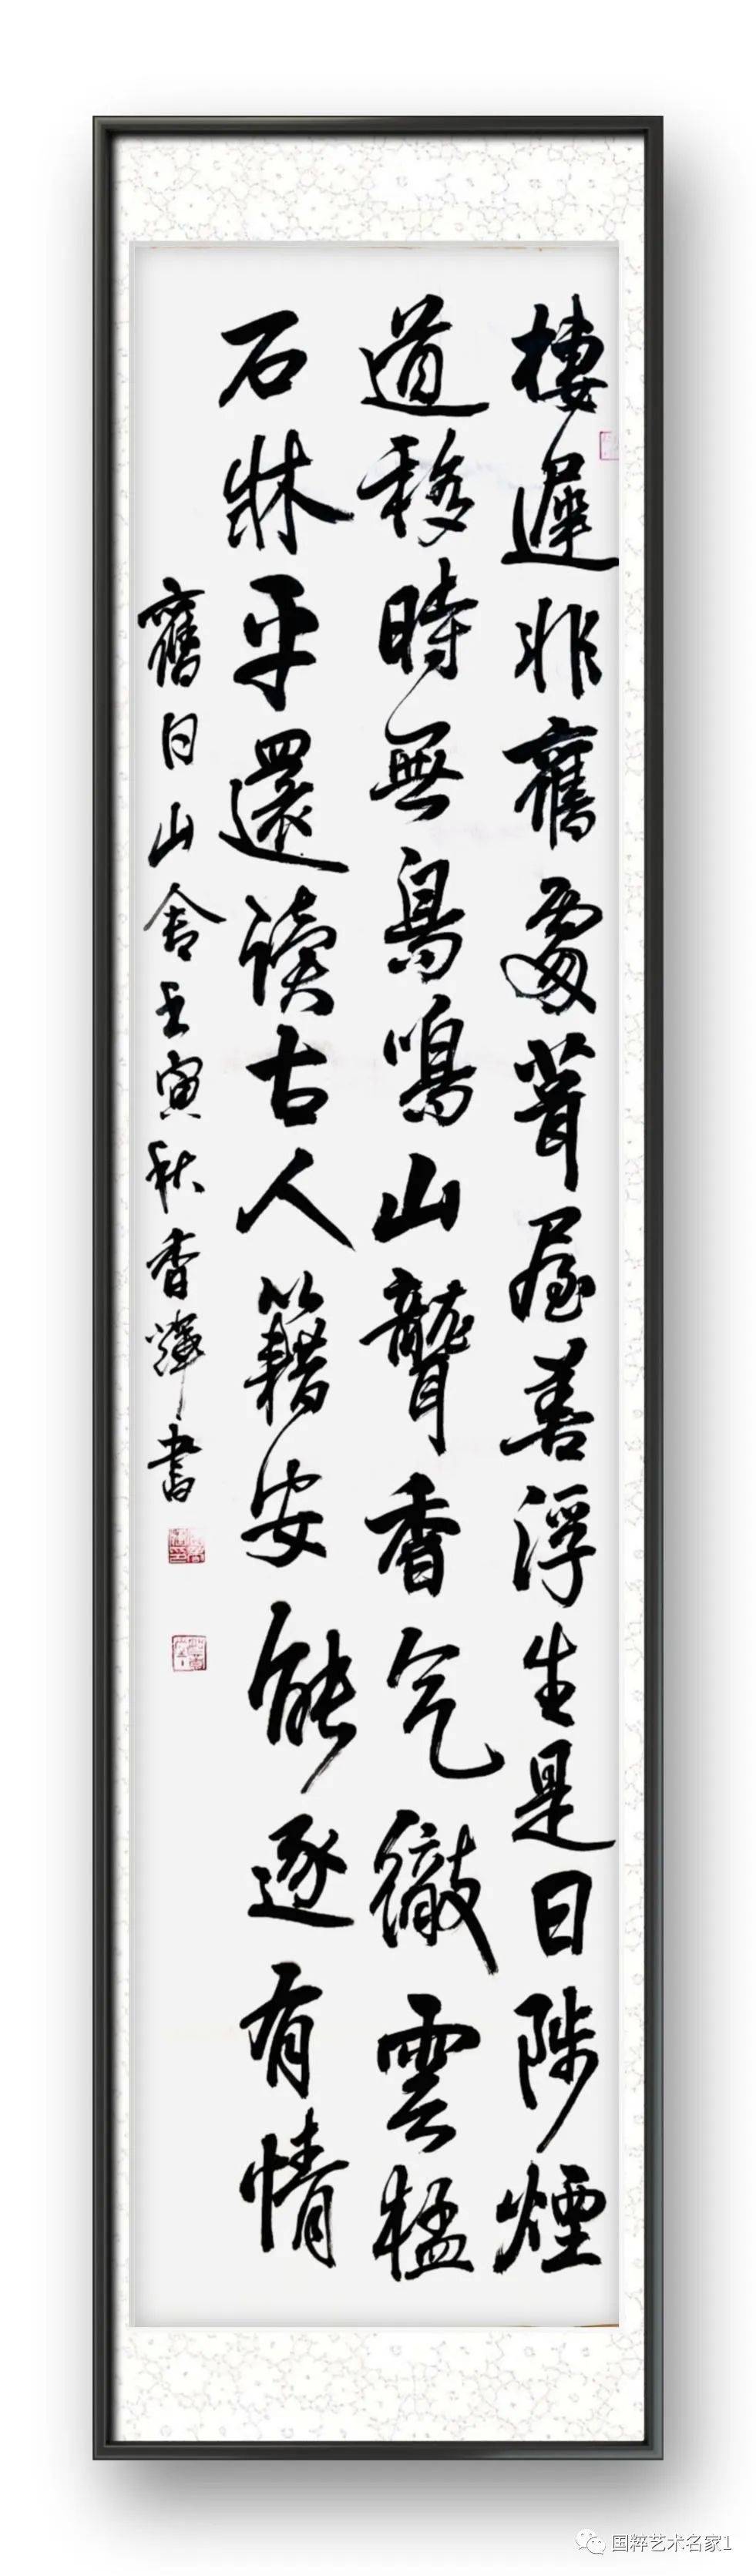 棲遲非舊處葺屋羡浮生是日陟煙
道移時無鳥鳴山聾香气徹雲榼
石牀平還读古人籍安能逐有情
舊日山舍壬寅秋香輝書
国粹艺术名家1